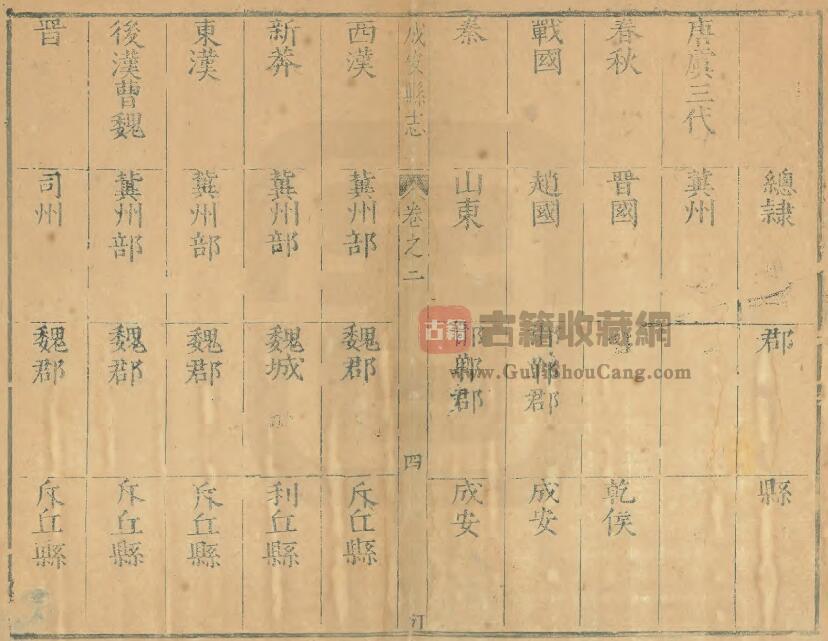 總隷 郡 縣
唐虞三代 冀州
春秋 晉國 乾侯
戰國 趙國 邯鄲郡 成安
秦 山東 邯鄲郡 成安
成安縣志 卷之二 四
西漢 冀州部 魏郡 斥丘縣
新莽 冀州部 魏城 利丘縣
東漢 冀州部 魏郡 斥丘縣
後漢曹魏 冀州部 魏郡 斥丘縣
晉 司州 魏郡 斥丘縣
古籍 古籍收藏網
www.GuJiShouCang.com